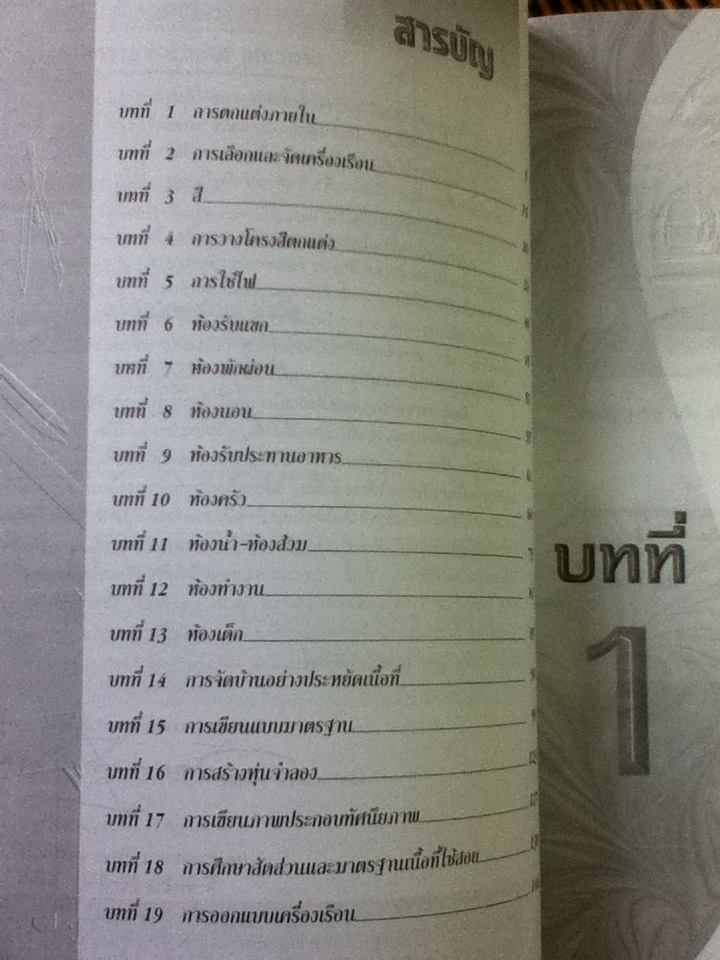 สารบัญ
บทที่ 1 การตกแต่งภายใน
บทที่ 2 การเลือกและจัดเครื่องเรือน
บทที่ 3 สี
บทที่ 4 การวางโครงสีตกแต่ง
บทที่ 5 การใช้ไฟ
บทที่ 6 ห้องรับแขก
บทที่ 7 ห้องพักผ่อน
บทที่ 8 ห้องนอน
บทที่ 9 ห้องรับประทานอาหาร
บทที่ 10 ห้องครัว
บทที่ 11 ห้องน้ำ-ห้องส้วม
บทที่ 12 ห้องทำงาน
บทที่ 13 ห้องเด็ก
บทที่ 14 การจัดบ้านอย่างประหยัดเนื้อที่
บทที่ 15 การเขียนแบบมาตรฐาน
บทที่ 16 การสร้างหุ่นจำลอง
บทที่ 17 การเขียนภาพประกอบทัศนียภาพ
บทที่ 18 การศึกษาสัดส่วนและมาตรฐานเนื้อที่ใช้สอย
บทที่ 19 การออกแบบเครื่องเรือน
บทที่
1